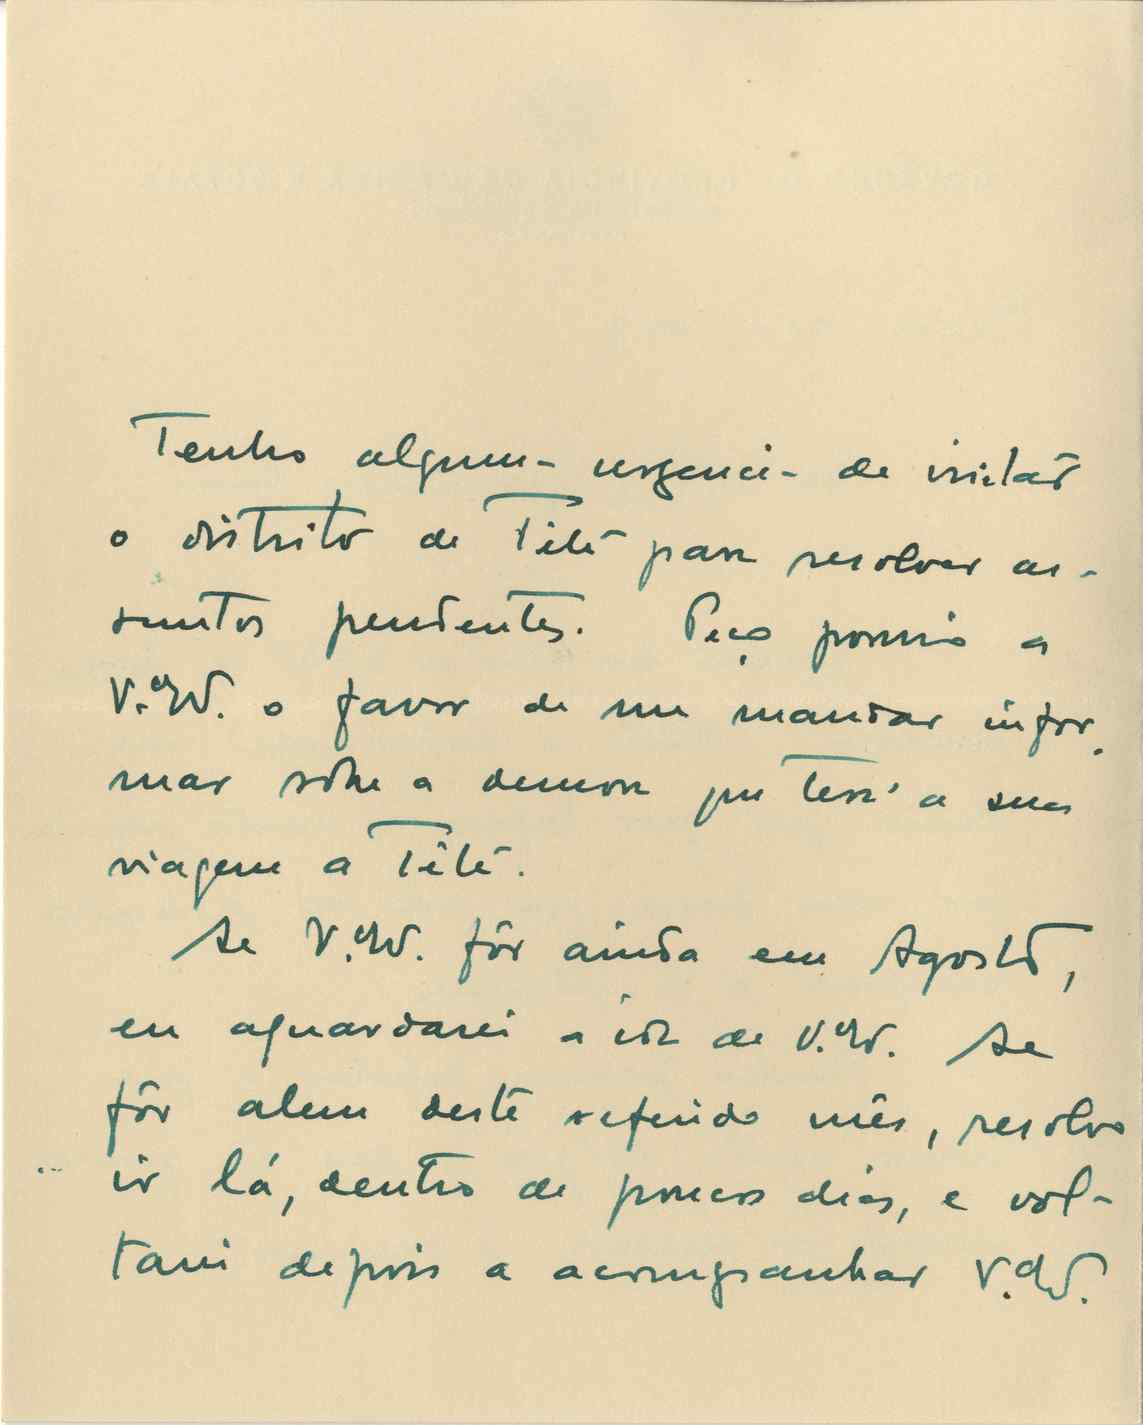 Tenho alguma urgencia de visitar
o distrito de Tété para resolver as-
suntos pendentes. Peço porisso a
V. Ex. o favor de me mandar infor-
mar sôbre a demora que terá a sua
viagem a Tété.
Se V. Ex. fôr ainda em Agosto,
eu aguardarei a ida de V. Ex. Se
fôr alem deste referido mês, resolvo
ir lá, dentro de poucos dias, e vol-
tarei depois a acompanhar V. Ex.